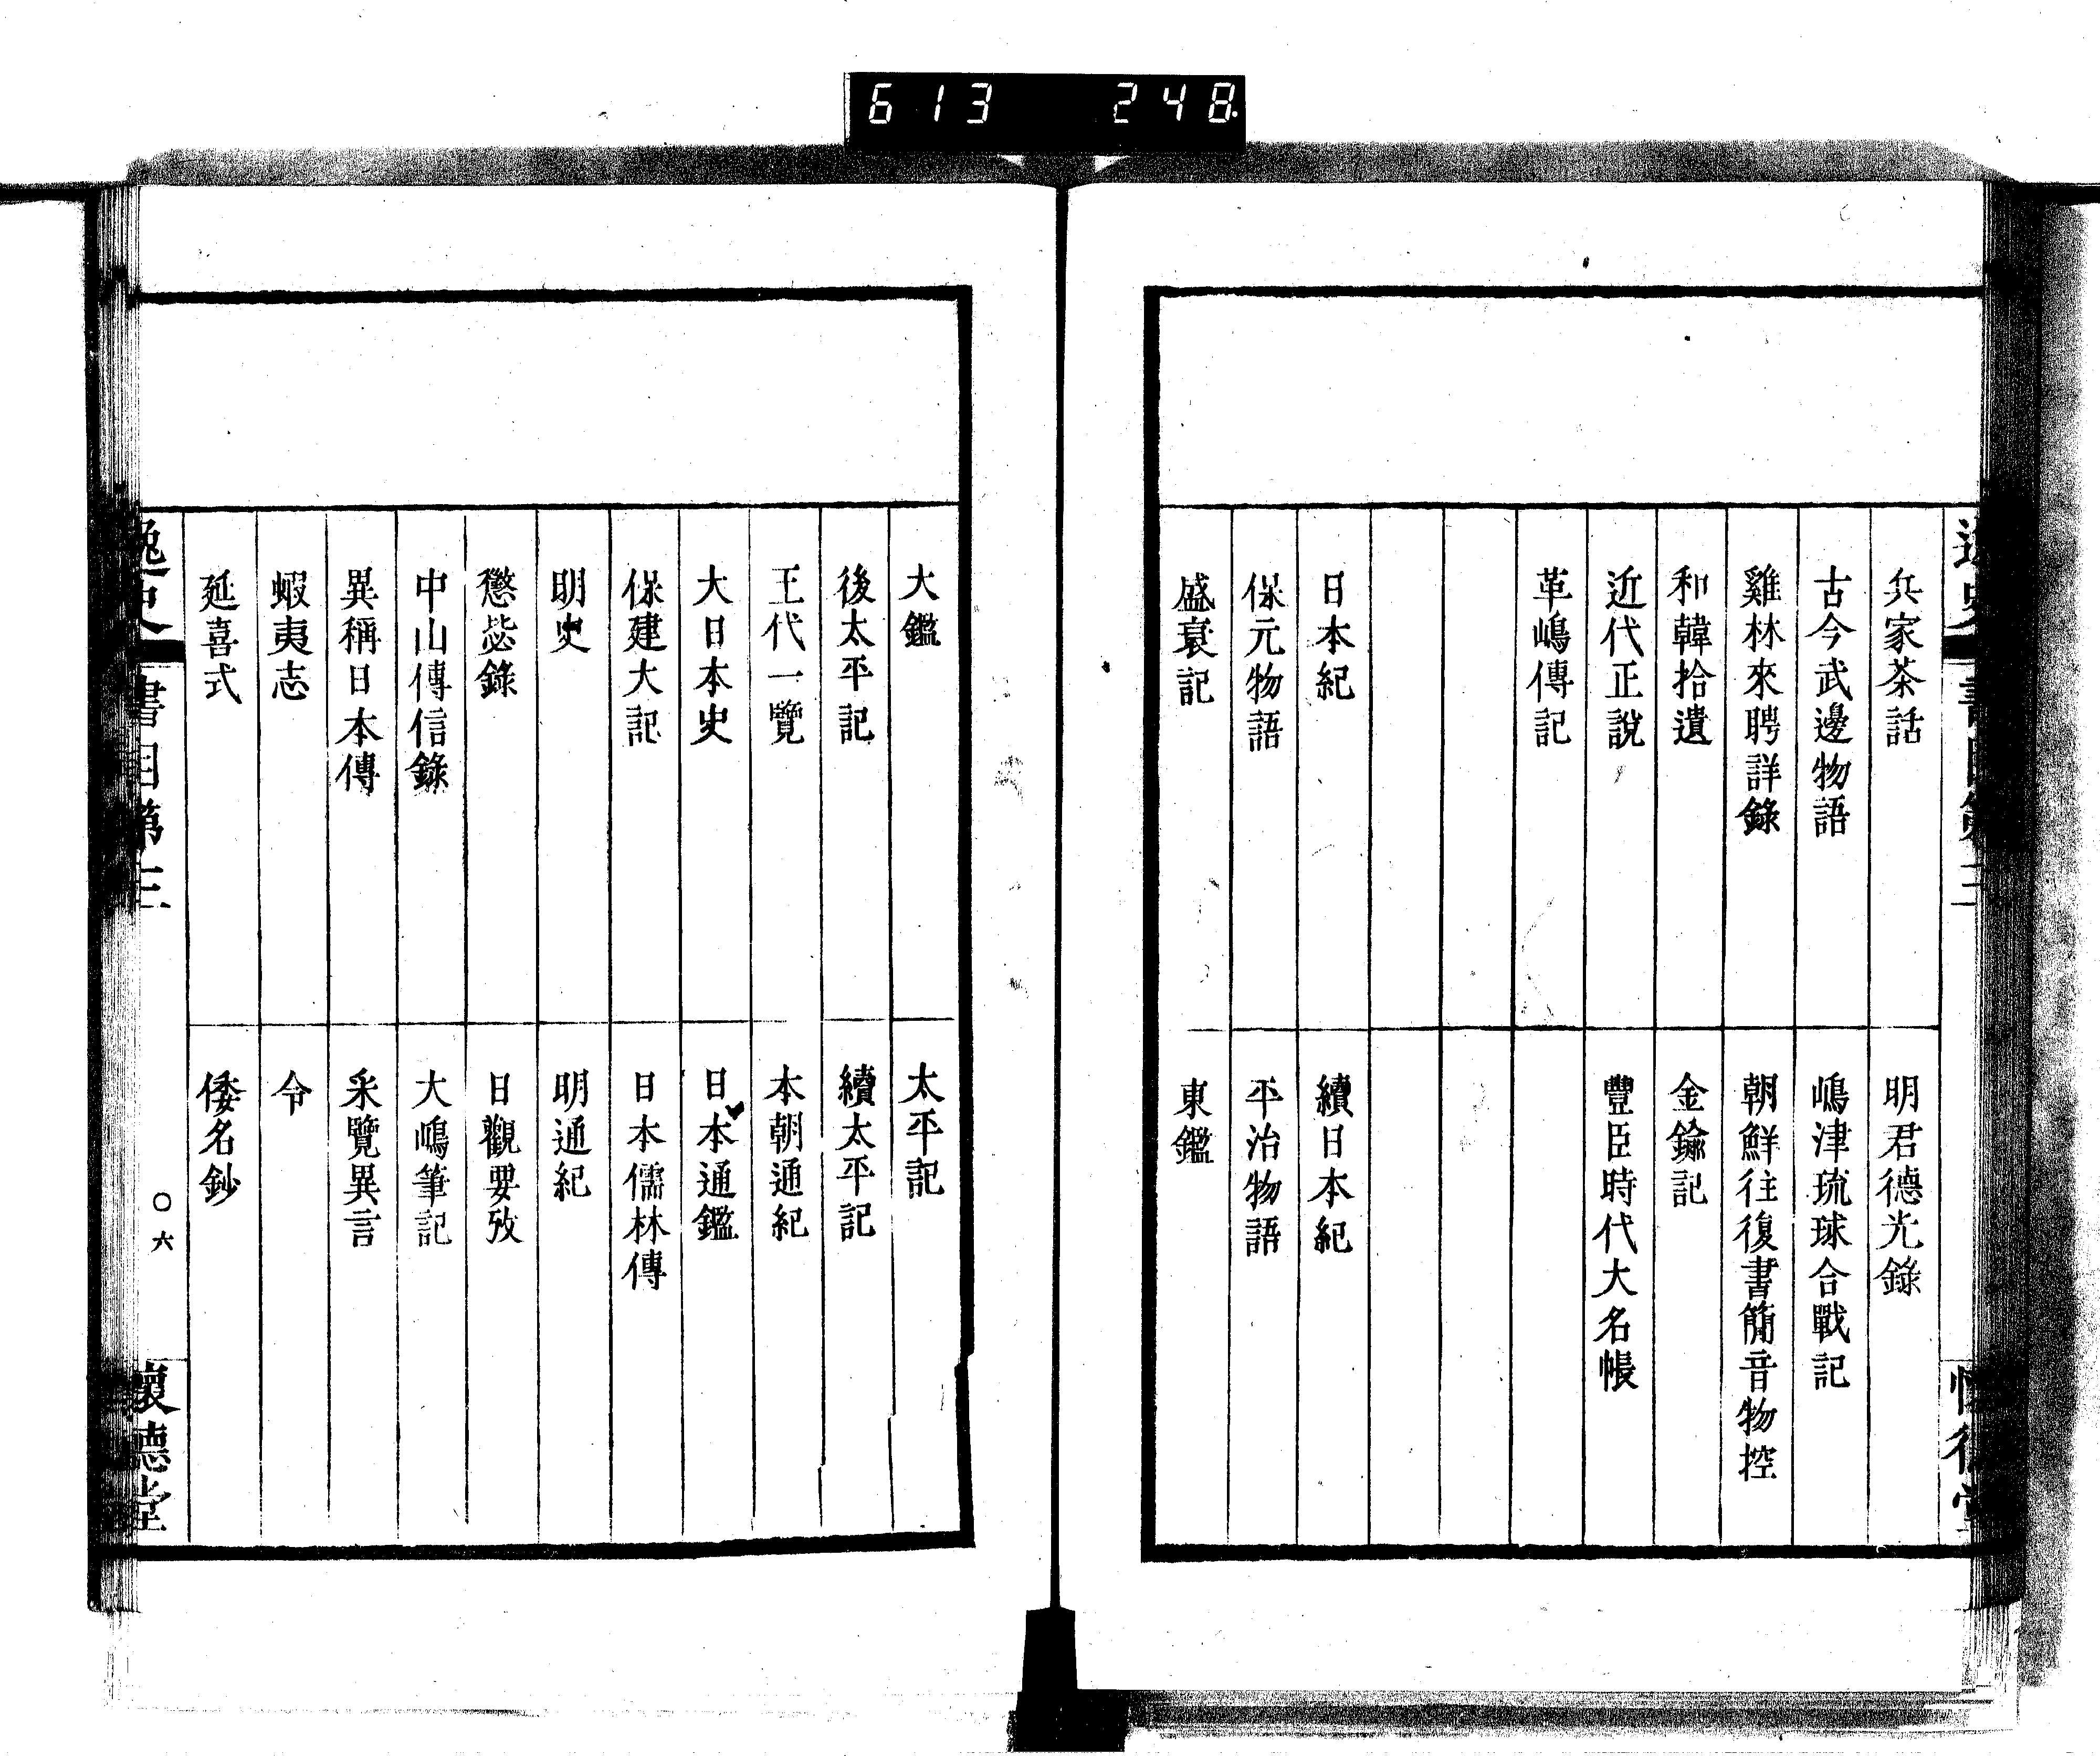 613 248
兵家茶話
明君德光錄
古今武邊物語
嶋津琉球合戰記
雞林來聘詳錄
朝鮮往復書簡音物控
和韓拾遺
金鍮記
近代正說
豐臣時代大名帳
革嶋傳記
日本紀
續日本紀
保元物語
平治物語
盛衰記
東鑑
大鑑
太平記
後太平記
續太平記
王代一覽
本朝通紀
大日本史
日本通鑑
保建大記
日本儒林傳
明史
明通紀
懲毖錄
日觀要攷
中山傳信錄
大嶋筆記
異稱日本傳
采覽異言
蝦夷志
令
延喜式
倭名鈔
逸史
書目第三
〇六
懷德堂